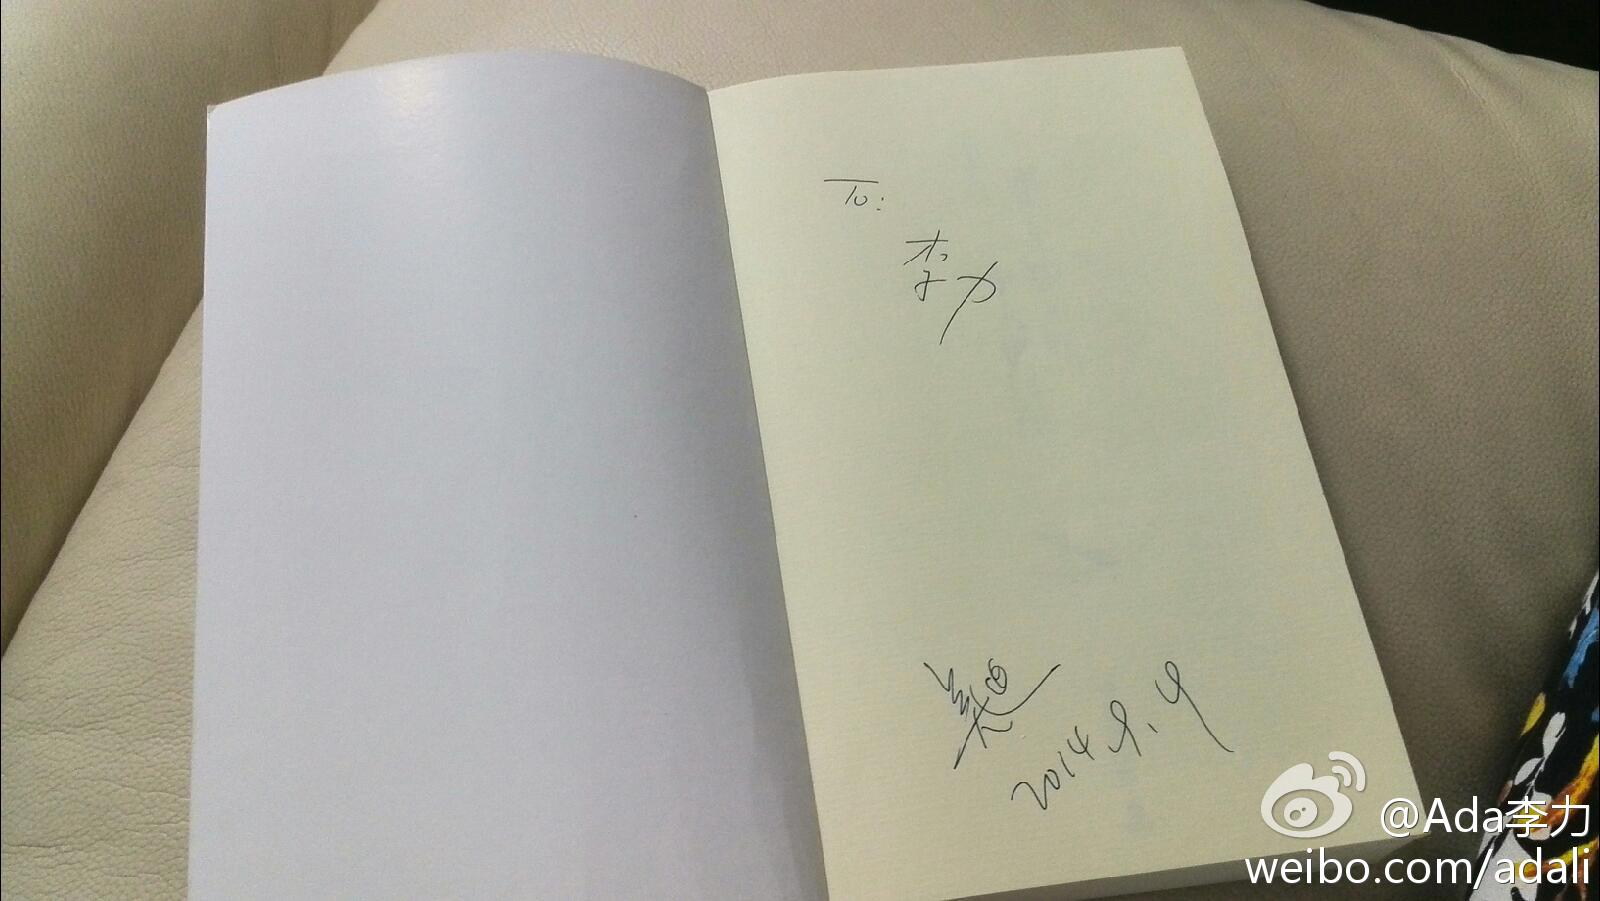 To:
李力
2014.9.9
@Ada李力
weibo.com/adali